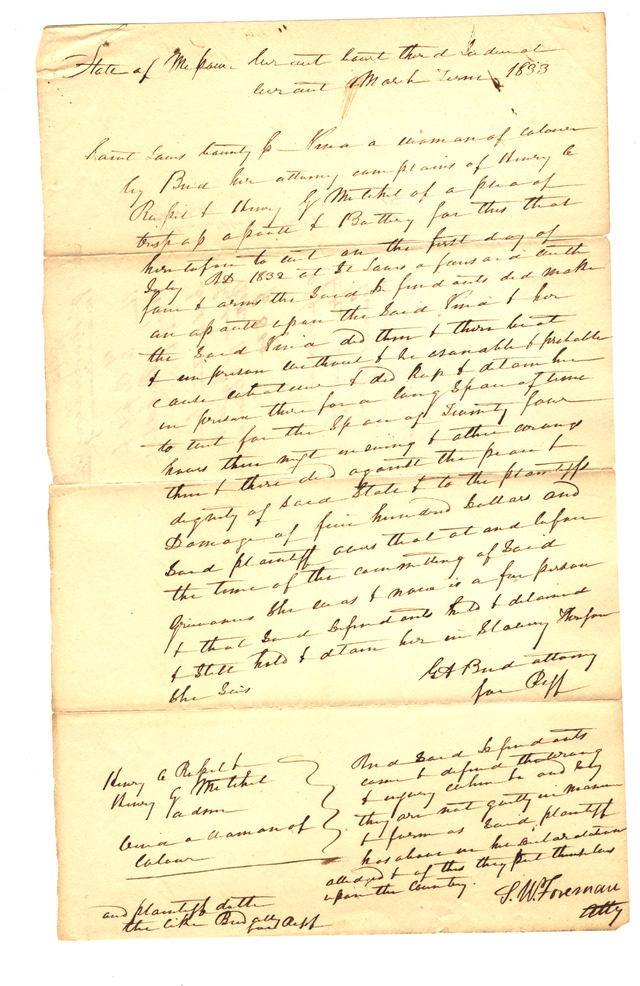 State of Missouri Circuit Court third Judicial
Circuit March Term, 1833
Saint Louis County Sc - Vina a woman of colour
by Bird her attorney complains of Henry C
Russel & Henry G Mitchel of a plea of
trespass assault & Battery for this that
heretofore to wit on the first day of
July AD 1832 at St Louis aforesaid with
force & arms the said Defendants did make
an assault upon the said Vina & her
the said Vina did then & there beat
& imprison without & reasonable & probable
cause whatever & did keep & detain her
in prison there for a long space of time
to wit for the space of Twenty four
hours then next ensuing & other wrongs
then & there did against the peace &
dignity of said State & to the plaintiffs
Damage of five hundred Dollars and
Said plaintiff avers that at and before
the time of the committing of Said
Grievances She was & now is a free person
& that Said Defendants held & detained
& Still hold & detain her in Slavery Therefore
She Sues
Bird attorney
for Plff
Henry C Russel &
Henry G Mitchel
ads
Vina a Woman of
Colour
And Said Defendants
come & defend the wrong
& injury when &c and say
they are not guilty in manner
& form as Said plaintiff
has above in her declaration
alledged & of this they put themselves
upon the Country.
S. W. Foreman
Atty
and plaintiff doth
the like Bird atty
for Plff